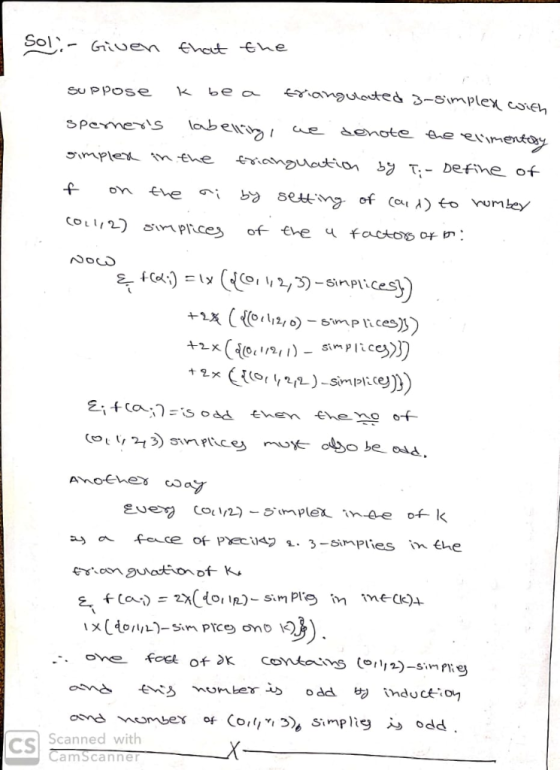 Sol:- Given that the
suppose k be a triangulated 3-simplex with
sperner's labelling, we denote the elimentory
simplex in the triangulation by Ti - Define of
f on the σi by setting of (a, λ) to number
(0,1,2) simplices of the 4 factors of
Now
Σi f(αi) = 1x ({(0,1,2,3)-simplices})
+2x ({(0,1,2,0)-simplices})
+2x ({(0,1,2,1)-simplices})
+2x ({(0,1,2,2)-simplices})
Σi f(ai) = is odd then the no of
(0,1,2,3) simplices must also be odd.
Another way
Every (0,1,2)-simplex in of k
is a face of 2. 3-simplies in the
triangulation of K.
Σi f(ai) = 2x({0,1,2)-simplies in int(k)+
1x({0,1,2)-simplices on k}).
∴ one fact of ∂K contains (0,1,2)-simplies
and this number is odd by induction
and number of (0,1,2,3), simplies is odd.
X
CS Scanned with
CamScanner